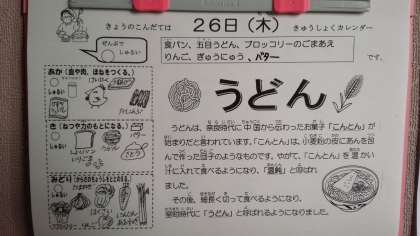 きょうのこんだては 26日(木) きゅうしょくカレンダー
ぜんぶで
しゅるい
食パン、五目うどん、ブロッコリーのごまあえ
りんご、ぎゅうにゅう、バター
です。
あか(血や肉、ほねをつくる。)
しゅるい
うどん
き(ねつや力のもとになる。)
しゅるい
みどり(からだのちょうしをととのえる)
しゅるい
うどんは、奈良時代に中国から伝わったお菓子「こんとん」が
始まりだと言われています。「こんとん」は、小麦粉の皮にあんを包
んで作った団子のようなものです。やがて、「こんとん」を温かい
汁に入れて食べるようになり、「温飩」と呼ばれ
ました。
その後、細長く切って食べるようになり、
室町時代に「うどん」と呼ばれるようになりました。